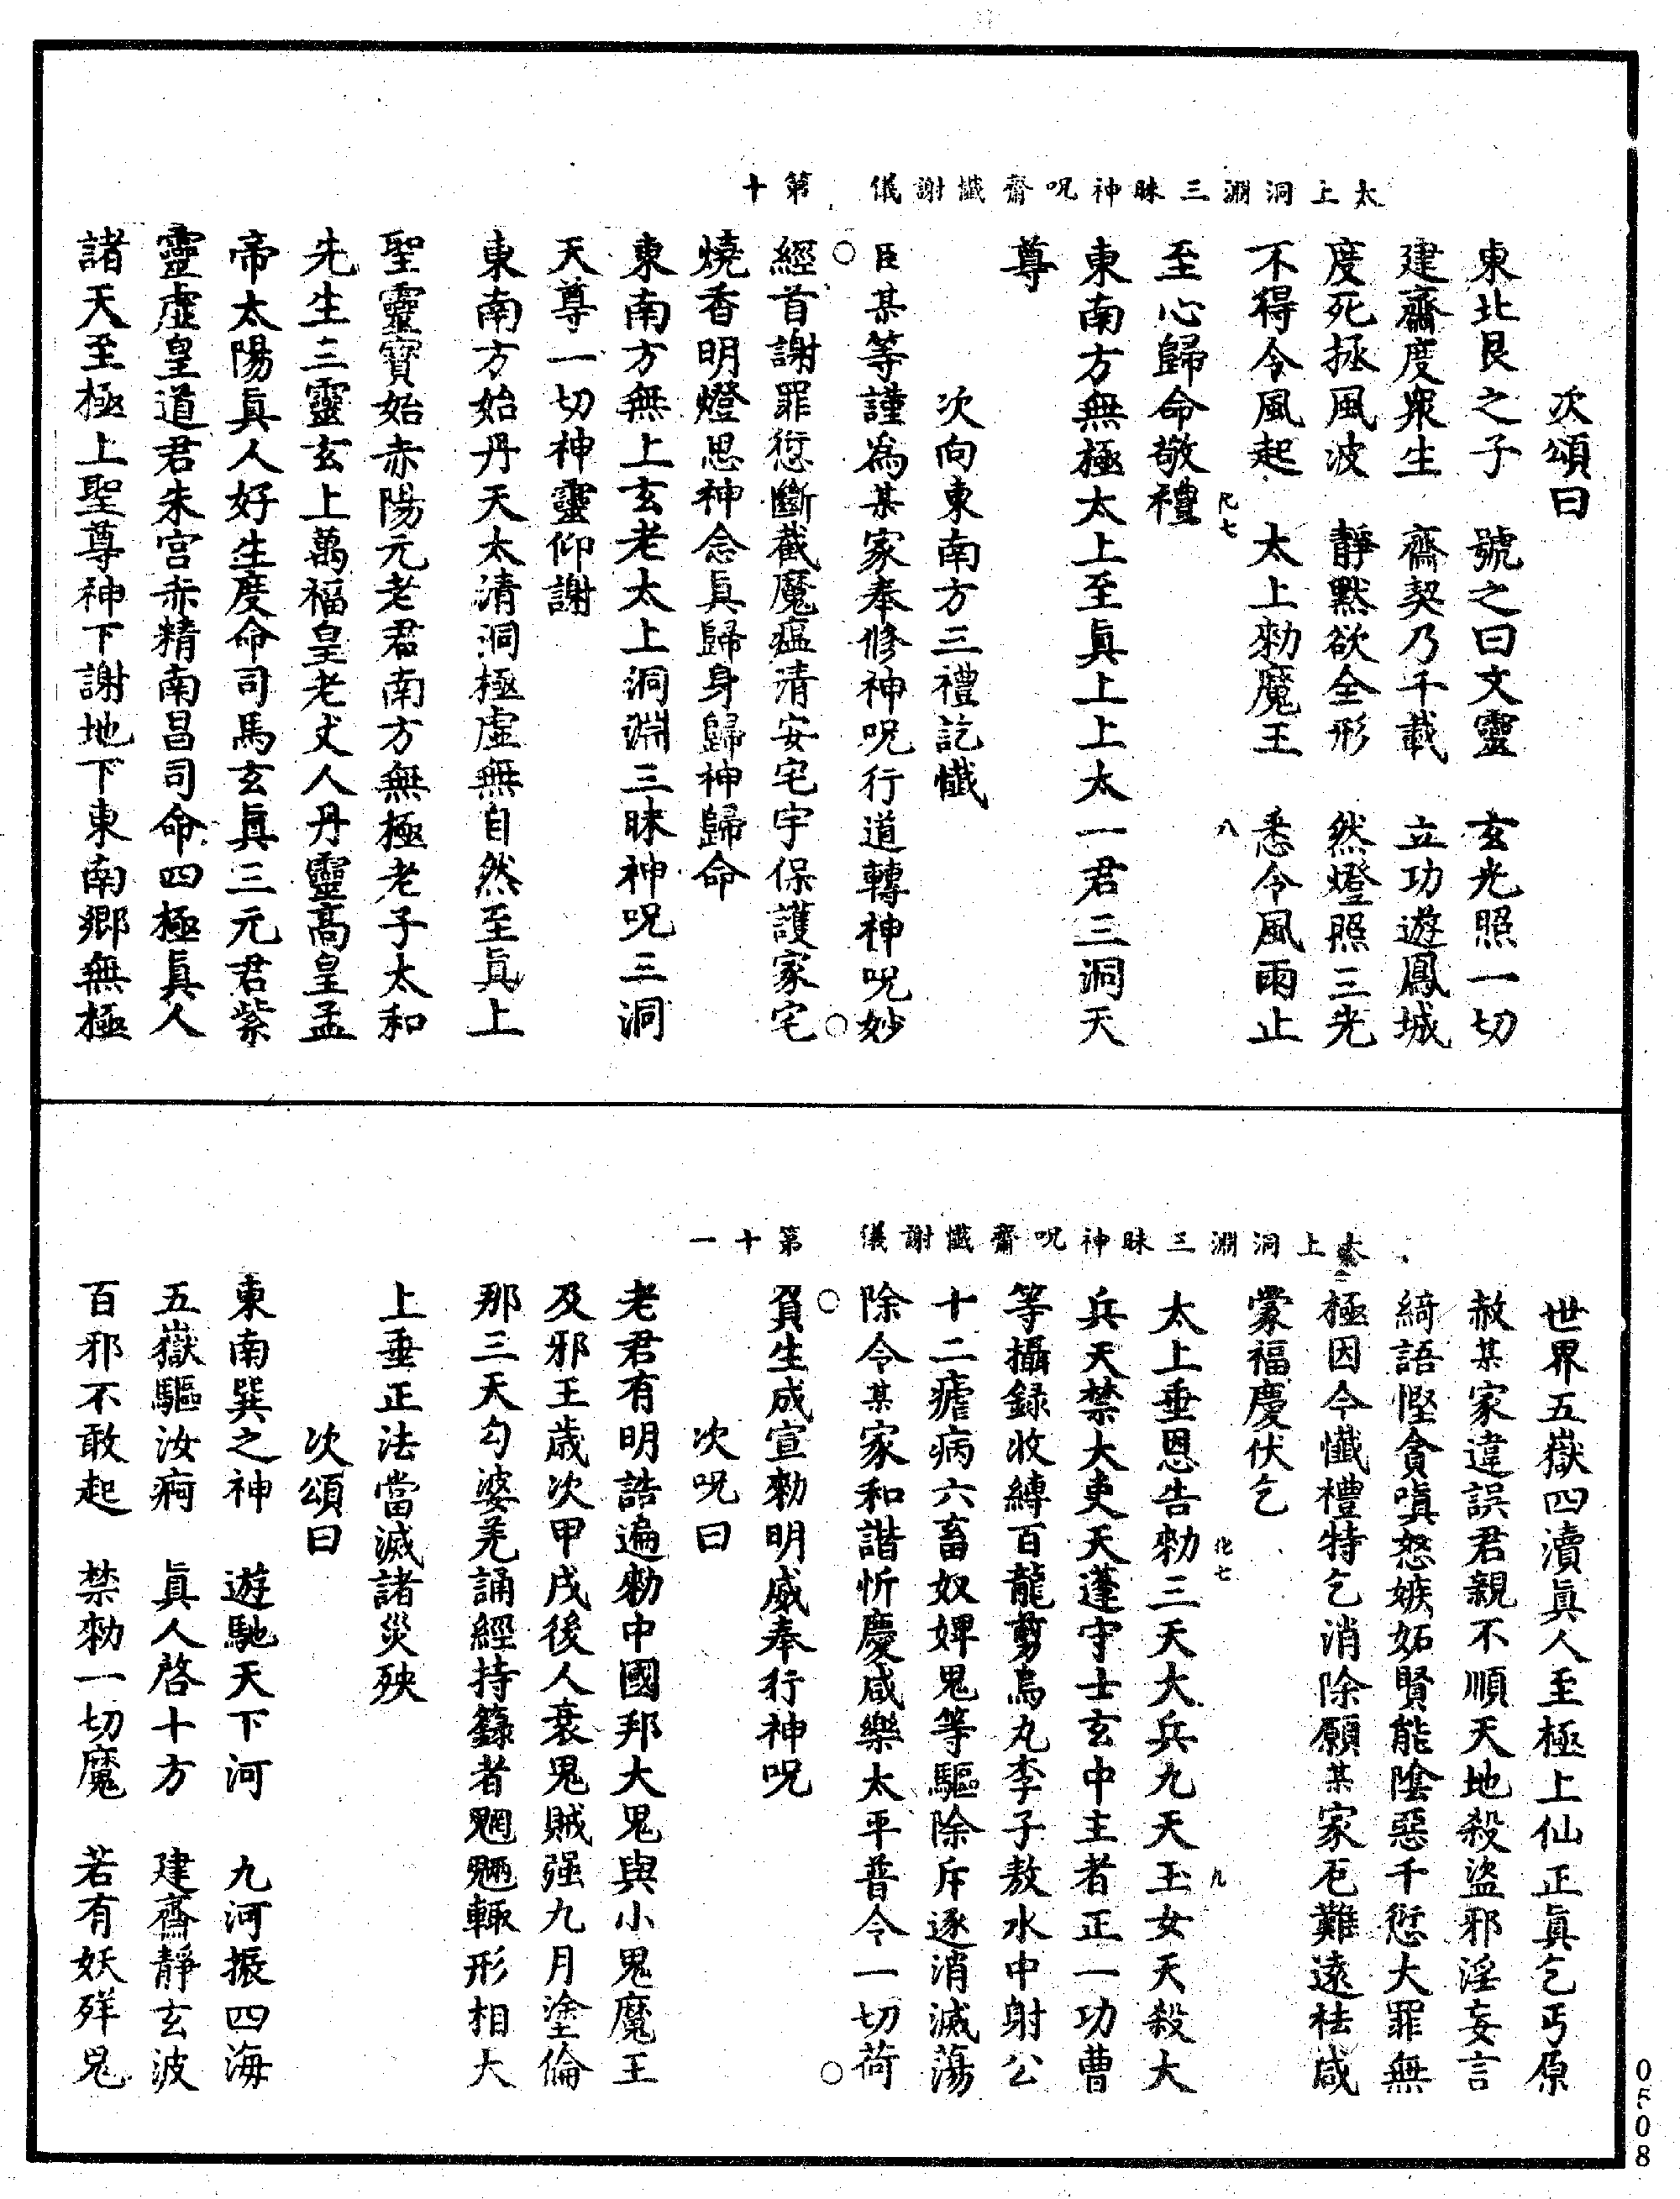 太上洞淵三昧神呪齋懺謝儀　第十
次頌曰
東北艮之子　號之曰文靈　玄光照一切
建齋度衆生　齋契乃千載　立功遊鳳城
度死拯風波　靜默欲全形　然燈照三光
不得令風起　太上勑魔王　悉令風雨止
至心歸命敬禮
東南方無極太上至眞上上太一君三洞天
尊
次向東南方三禮訖懺
臣某等謹爲某家奉修神呪行道轉神呪妙
經首謝罪愆斷截魔瘟清安宅宇保護家宅
燒香明燈思神念眞歸身歸神歸命
東南方無上玄老太上洞淵三昧神呪三洞
天尊一切神靈仰謝
東南方始丹天太清洞極虛無自然至眞上
聖靈寶始赤陽元老君南方無極老子太和
先生三靈玄上萬福皇老丈人丹靈高皇孟
帝太陽眞人好生度命司馬玄眞三元君紫
靈虛皇道君朱宮赤精南昌司命四極眞人
諸天至極上聖尊神下謝地下東南鄉無極
太上洞淵三昧神呪齋懺謝儀　第十一
世界五嶽四瀆眞人至極上仙正眞乞丐原
赦某家違誤君親不順天地殺盜邪淫妄言
綺語慳貪嗔怒嫉妬賢能陰惡千愆大罪無
極因今懺禮特乞消除願某家厄難遠祛咸
蒙福慶伏乞
太上垂恩告勑三天大兵九天玉女天殺大
兵天禁大吏天蓬守士玄中主者正一功曹
等攝録收縛百龍剪烏丸李子敖水中射公
十二瘧病六畜奴婢鬼等驅除斥逐消滅蕩
除令某家和諧忻慶咸樂太平普令一切荷
負生成宣勑明威奉行神呪
次呪曰
老君有明誥遍勑中國邦大鬼與小鬼魔王
及邪王歲次甲戌後人衰鬼賊强九月塗倫
那三天勾婆羌誦經持籙者魍魎輒形相大
上垂正法當滅諸災殃
次頌曰
東南巽之神　遊馳天下河　九河振四海
五嶽驅汝痾　眞人啓十方　建齋靜玄波
百邪不敢起　禁勑一切魔　若有妖殍鬼
0508